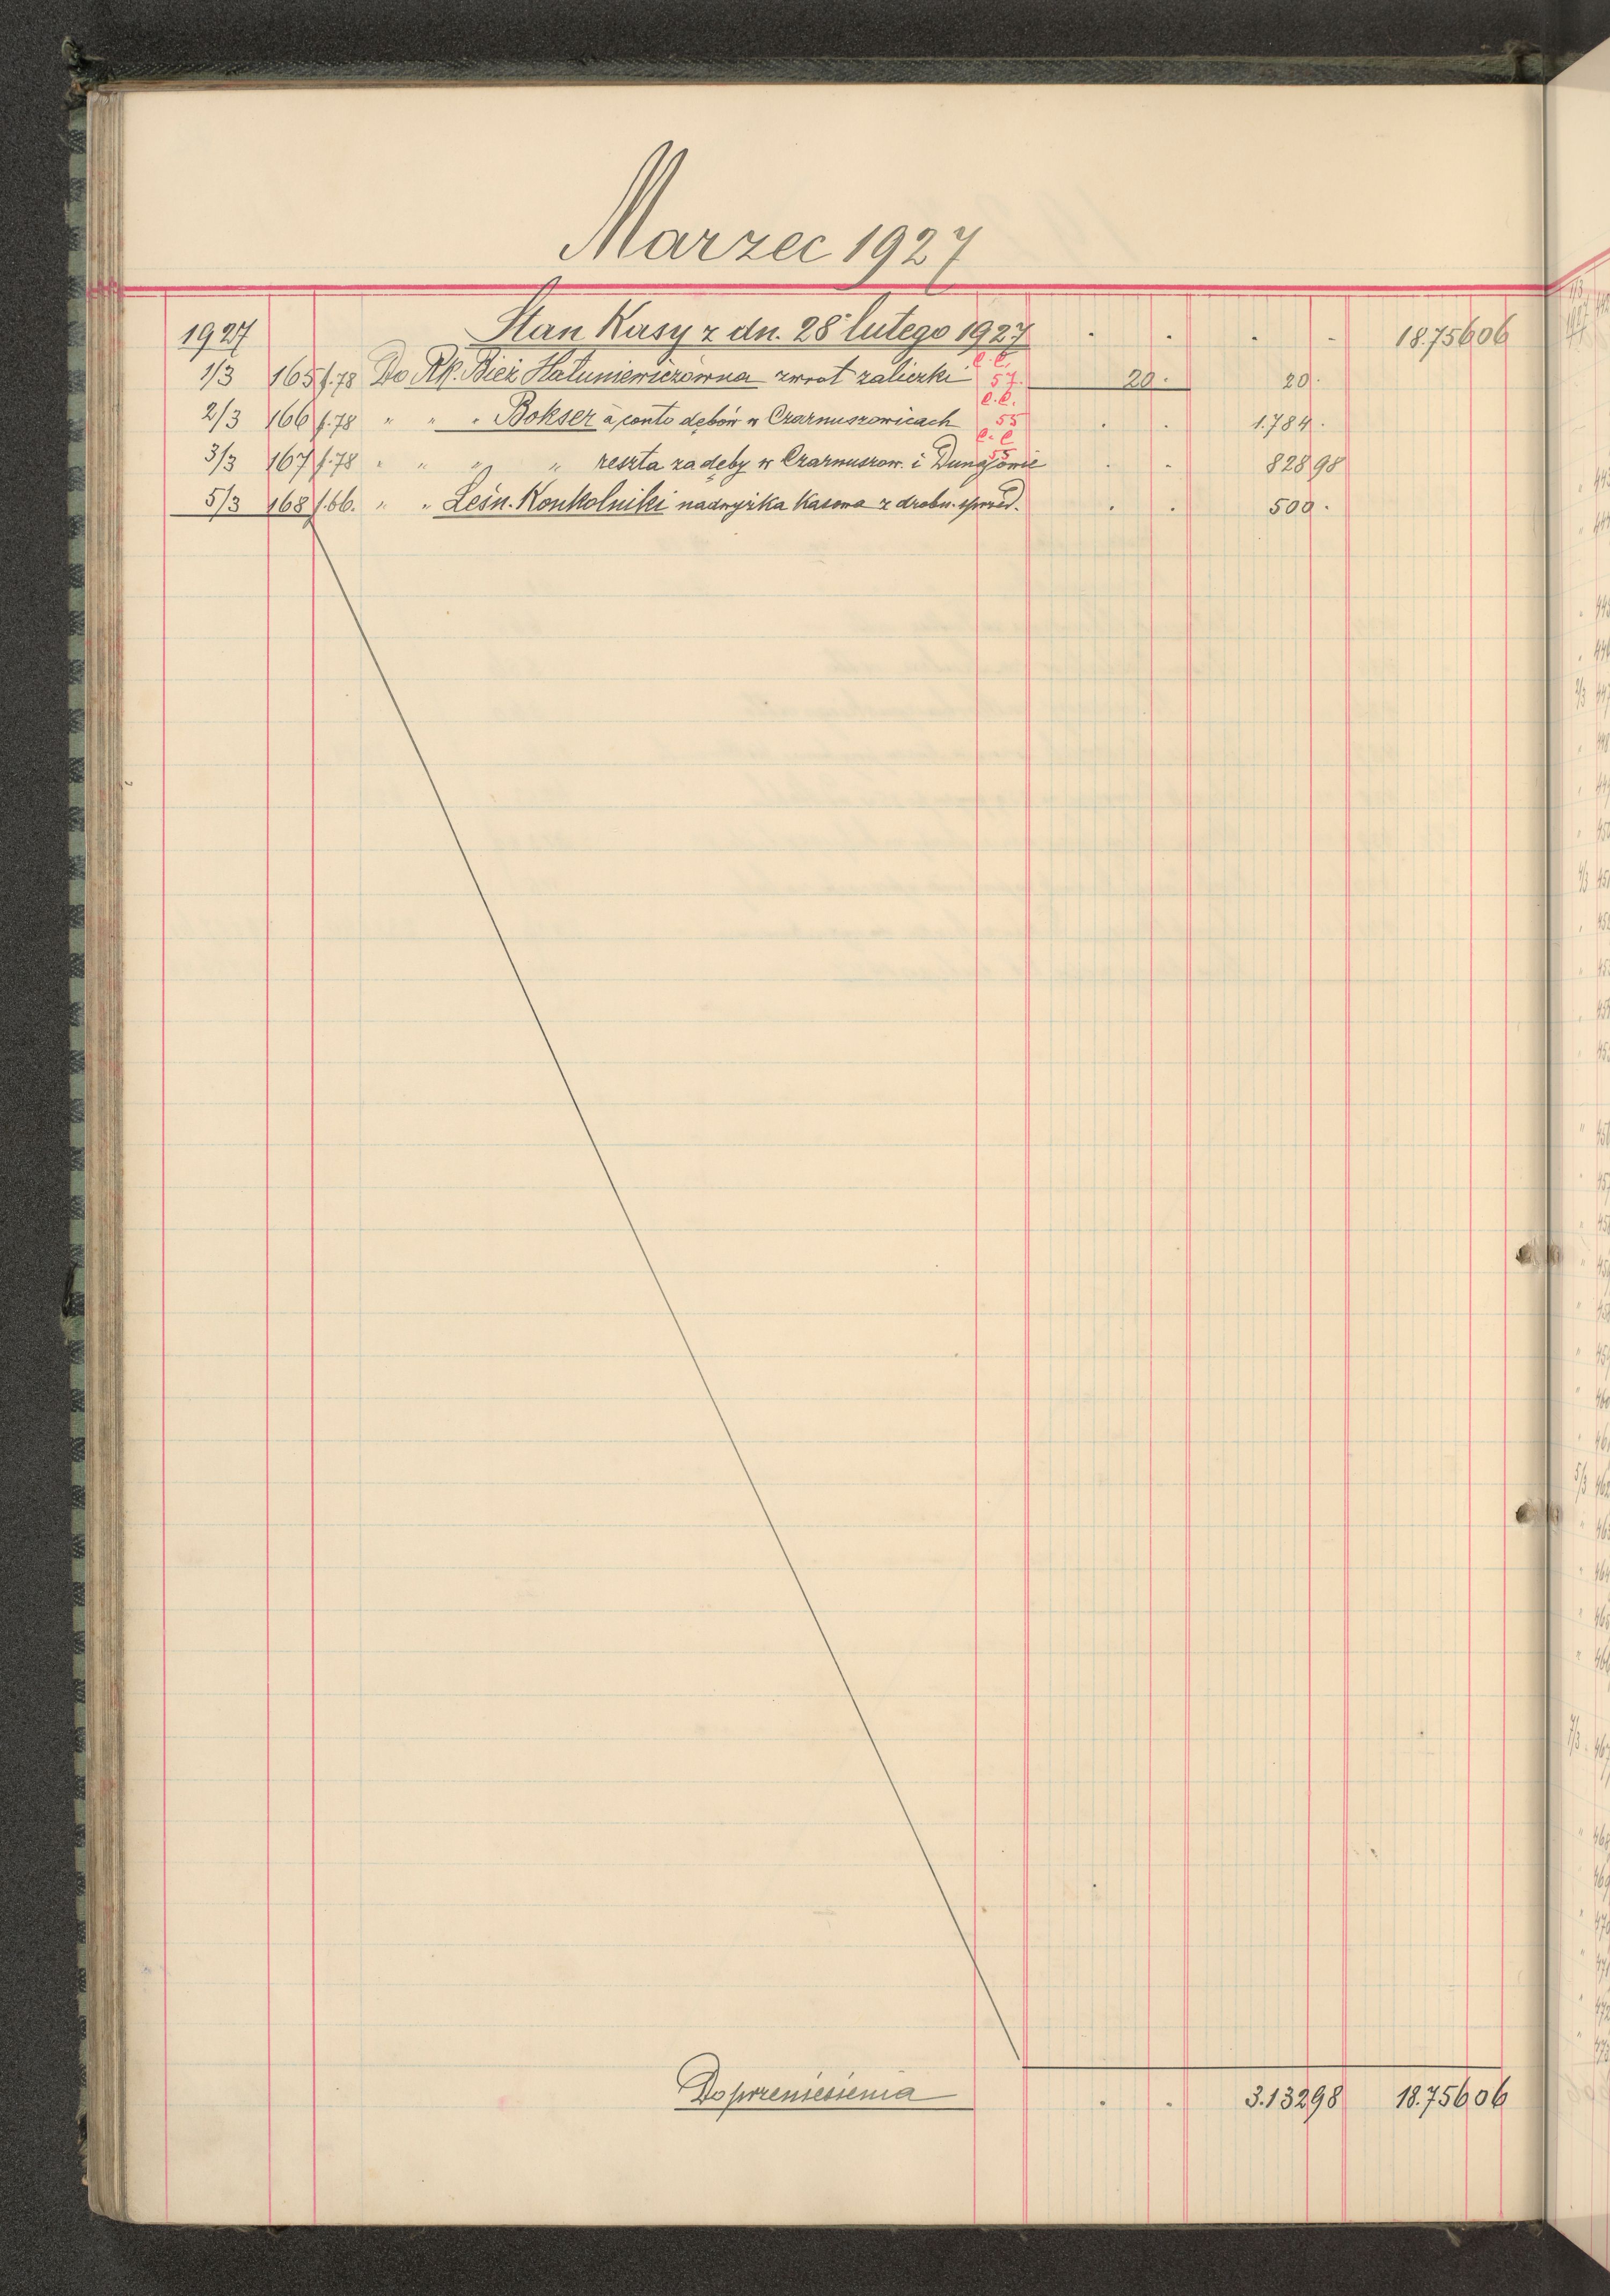 Marzec 1927
1927 Stan Kasy z dn. 28 lutego 1927 . . . . 18.756 06
1/3 165 f. 78 Do Rk. Bież Hatuniewiczówna zwrot zaliczki e. e. 57. 20 . 20 .
2/3 166 f. 78 " " " Bokser à conto dębów w Czarnuszowicach e. e. 55 . . 1.784 .
3/3 167 f. 78 " " " " reszta za dęby w Czarnuszow. i e. e. 55 . . 828 98
5/3 168 f. 66. " " Leśn. Konkolniki nadwyżka Kasowa z drobn. sprzed. . . 500 .
Do przeniesienia . . 3.132 98 18.756 06